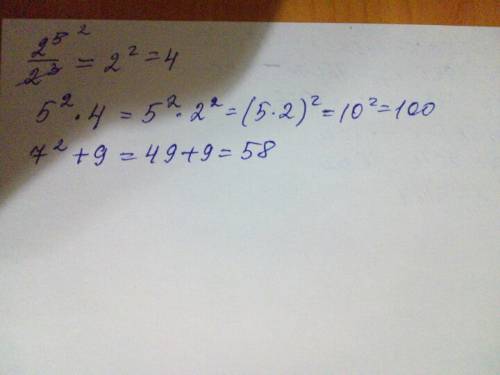 2⁵ ² / 2³ = 2² = 4
5² · 4 = 5² · 2² = (5·2)² = 10² = 100
7² + 9 = 49 + 9 = 58